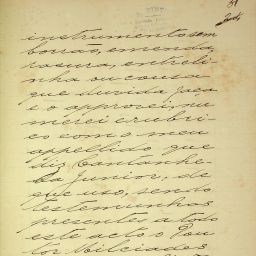 instrumento sem
borrão, emenda,
rasura, entreli-
nha ou cousa
que duvida faça
e o approvei, nu
merei e rubri-
ei com o meu
appellido que
diz Cantanhe-
da Junior, de
que uso, sendo
testemunhas
presentes a todo
este acto o Dou
tor Milciades